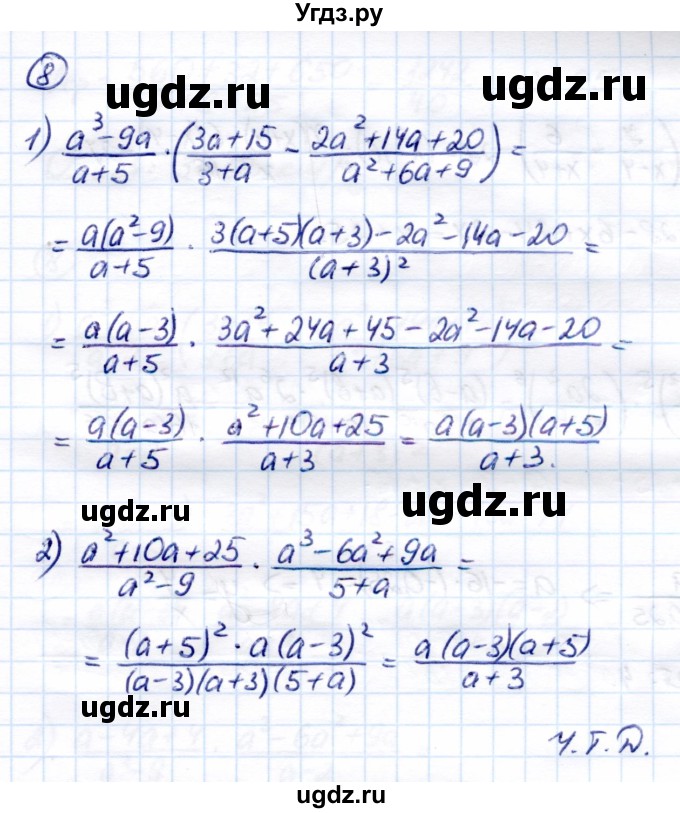 Угдз.ру
8
ugdz.ru ugdz.ru
1) (a³-9a)/(a+5) · ((3a+15)/(3+a) - (2a²+14a+20)/(a²+6a+9)) =
= a(a²-9)/(a+5) · (3(a+5)(a+3)-2a²-14a-20)/(a+3)² =
= a(a-3)/(a+5) · (3a²+24a+45-2a²-14a-20)/(a+3) =
= a(a-3)/(a+5) · (a²+10a+25)/(a+3) = a(a-3)(a+5)/(a+3).
ugdz.ru ugdz.ru
2) (a²+10a+25)/(a²-9) · (a³-6a²+9a)/(5+a) =
= ((a+5)²·a(a-3)²)/((a-3)(a+3)(5+a)) = a(a-3)(a+5)/(a+3)
ugdz.ru
Ч.Т.Д.
ugdz.ru